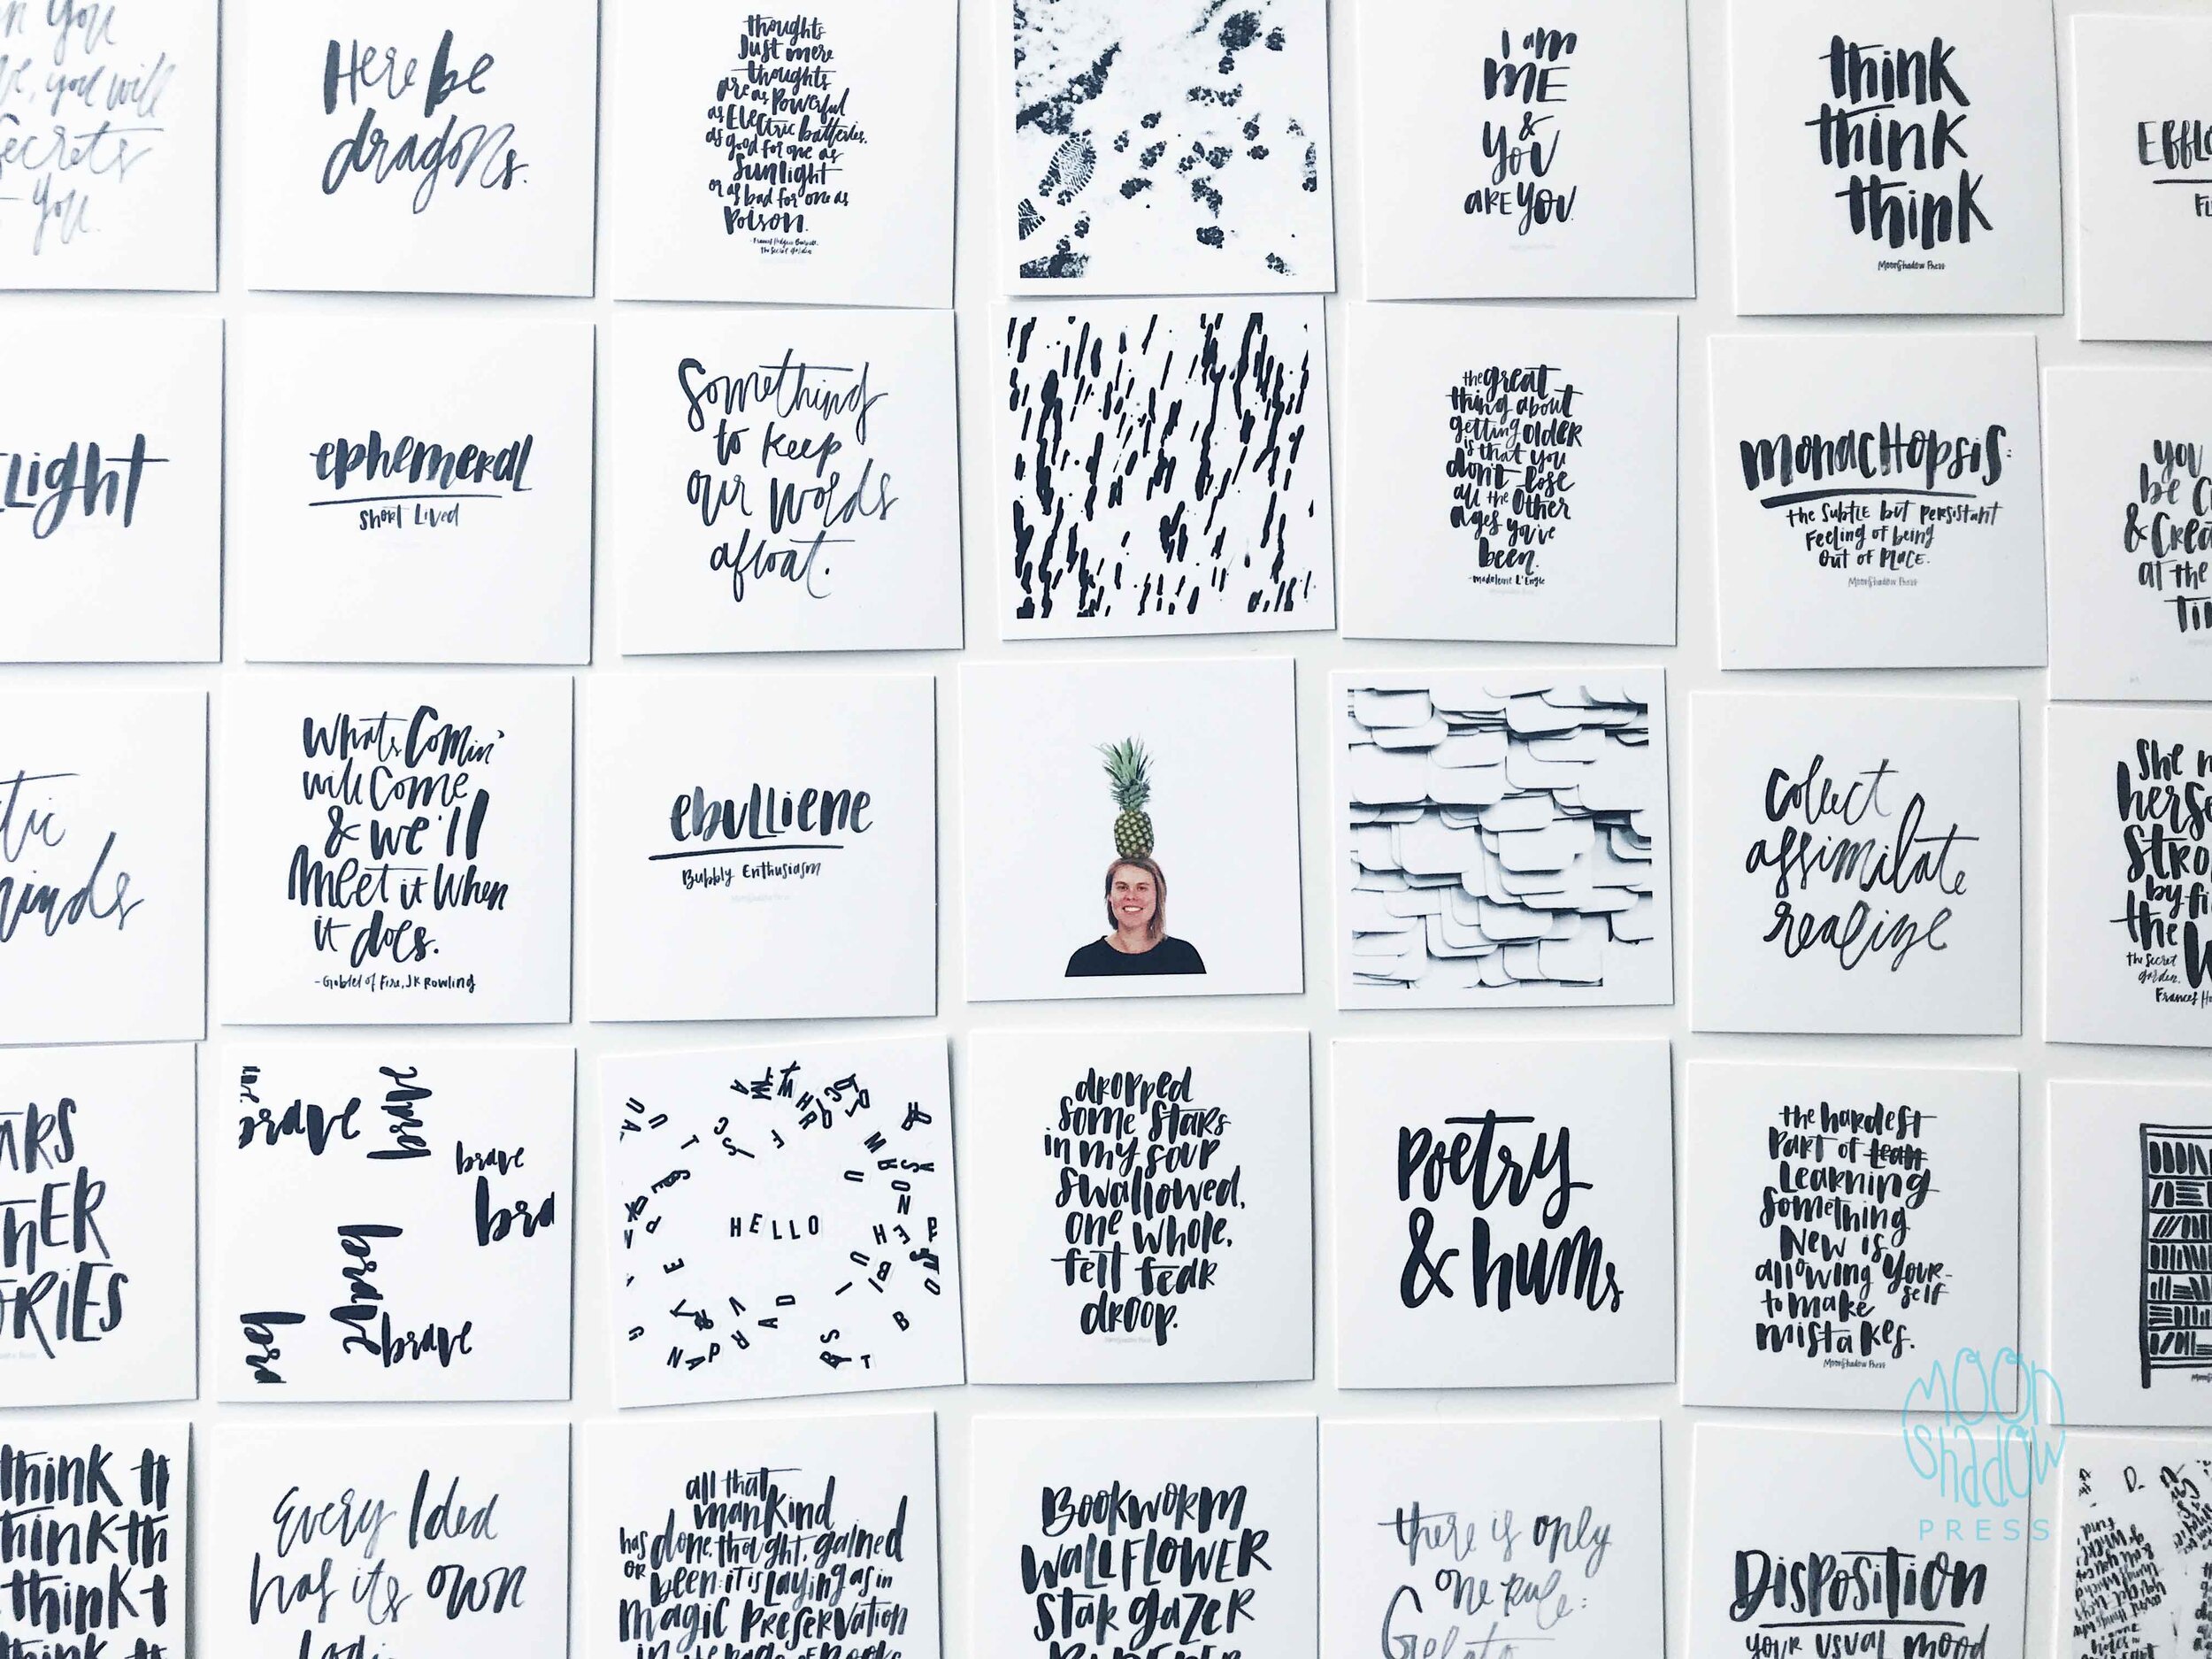 you
you will
secrets
you.
Here be
dragons.
thoughts
Just mere
thoughts
are as Powerful
as Electric batteries.
as good for one as
Sunlight
or as bad for one as
Poison.
The Secret Garden
i am
ME
&
you
are you
think
think
think
MoonShadow Press
Light
ephemeral
Short Lived
Something
to keep
our words
afloat.
the great
thing about
getting older
is that you
don't lose
all the other
ages you've
been.
-Madeleine L'Engle
monachopsis:
the subtle but persistant
Feeling of being
Out of Place.
MoonShadow Press
you
be
&
at the
What's Comin'
will Come
& we'll
Meet it When
it does.
-Goblet of Fire, JK Rowling
ebulliene
Bubbly Enthusiasm
collect
assimilate
realize
She
the
the Secret
garden.
brave
brave
brave
bra
brave
brave
bra
HELLO
dropped
some stars
in my soup
swallowed,
one whole,
felt fear
droop.
Poetry
& hums
the hardest
Part of lean
Learning
Something
New is
allowing your-
self
to make
mistakes.
MoonShadow Press
think
think
think
think
Every Idea
has its own
all that
mankind
has done, thought, gained
or been: it is laying as in
magic Preservation
in the pages of Books
Bookworm
Wallflower
Star gazer
there is only
one rule:
Gelato
Disposition
your usual mood
MOON
Shadow
PRESS